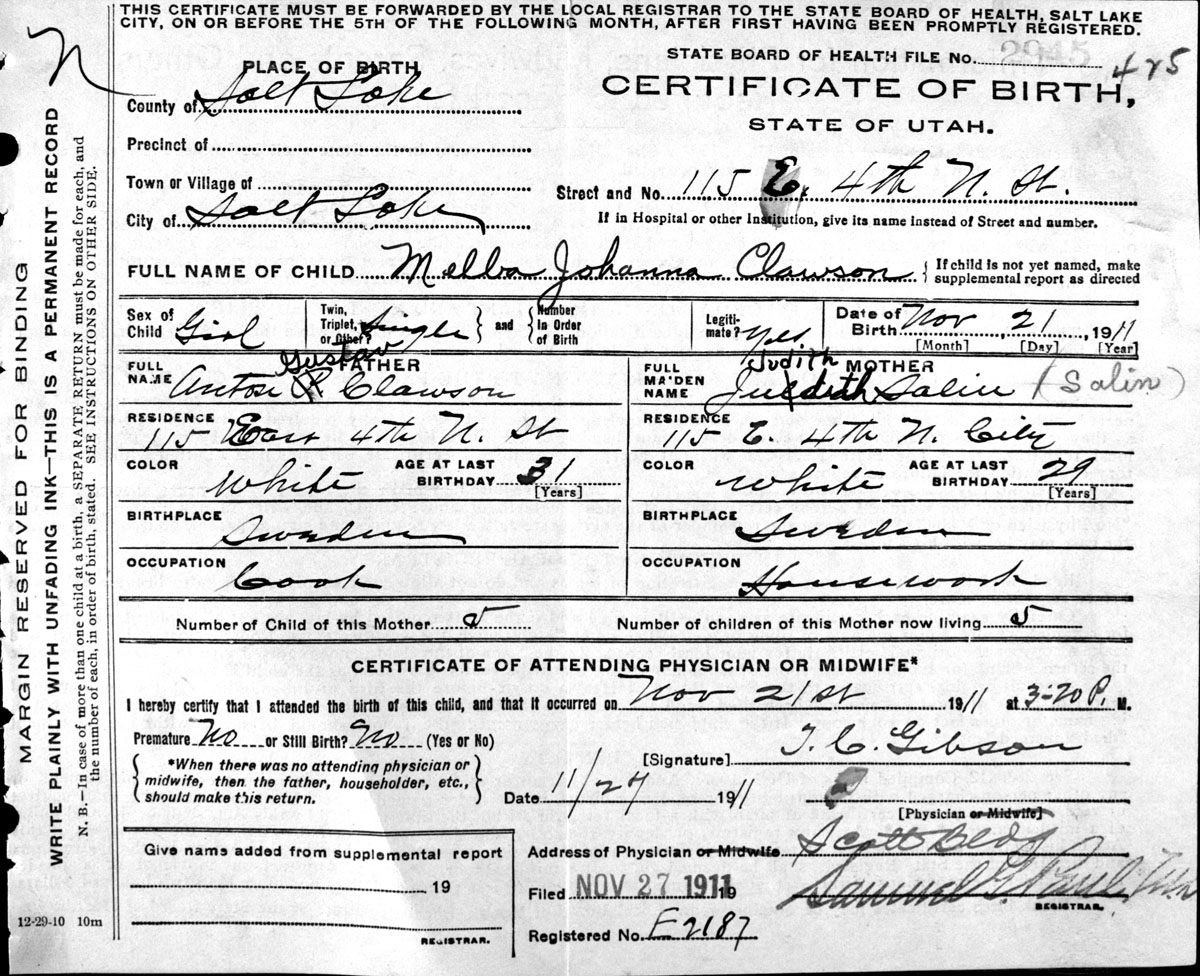 THIS CERTIFICATE MUST BE FORWARDED BY THE LOCAL REGISTRAR TO THE STATE BOARD OF HEALTH, SALT LAKE
CITY, ON OR BEFORE THE 5TH OF THE FOLLOWING MONTH, AFTER FIRST HAVING BEEN PROMPTLY REGISTERED.
STATE BOARD OF HEALTH FILE No. 2945 425
PLACE OF BIRTH
CERTIFICATE OF BIRTH,
STATE OF UTAH.
County of Salt Lake
Precinct of
Town or Village of
Street and No. 115 E. 4th N. St.
City of Salt Lake
If in Hospital or other Institution, give its name instead of Street and number.
FULL NAME OF CHILD Melba Johanna Clawson { If child is not yet named, make
supplemental report as directed
Sex of Child Girl
Twin, Triplet, or Other? Single } and { Number in Order of Birth
Legiti-mate? Yes
Date of Birth Nov 21, 1911
[Month] [Day] [Year]
FATHER
FULL NAME Anton Gustav Clawson
RESIDENCE 115 East 4th N. St
COLOR White AGE AT LAST BIRTHDAY 31
[Years]
BIRTHPLACE Sweden
OCCUPATION Cook
MOTHER
FULL MAIDEN NAME Judith Salin (Salin)
RESIDENCE 115 E. 4th N. City
COLOR White AGE AT LAST BIRTHDAY 29
[Years]
BIRTHPLACE Sweden
OCCUPATION Housework
Number of Child of this Mother 5 Number of children of this Mother now living 5
CERTIFICATE OF ATTENDING PHYSICIAN OR MIDWIFE*
I hereby certify that I attended the birth of this child, and that it occurred on Nov 21st 1911 at 3-20 P. M.
Premature No or Still Birth? No (Yes or No)
{ *When there was no attending physician or
midwife, then the father, householder, etc.,
should make this return. }
[Signature] T. C. Gibson
Date 11/27 1911
[Physician or Midwife]
Give name added from supplemental report
19
REGISTRAR.
Address of Physician or Midwife Scott Bldg
Filed NOV 27 1911 19
Samuel G. Paul
REGISTRAR.
Registered No. E2187
12-29-10 10m
MARGIN RESERVED FOR BINDING
WRITE PLAINLY WITH UNFADING INK—THIS IS A PERMANENT RECORD
N. B.—In case of more than one child at a birth, a SEPARATE RETURN must be made for each, and
the number of each, in order of birth, stated. SEE INSTRUCTIONS ON OTHER SIDE.